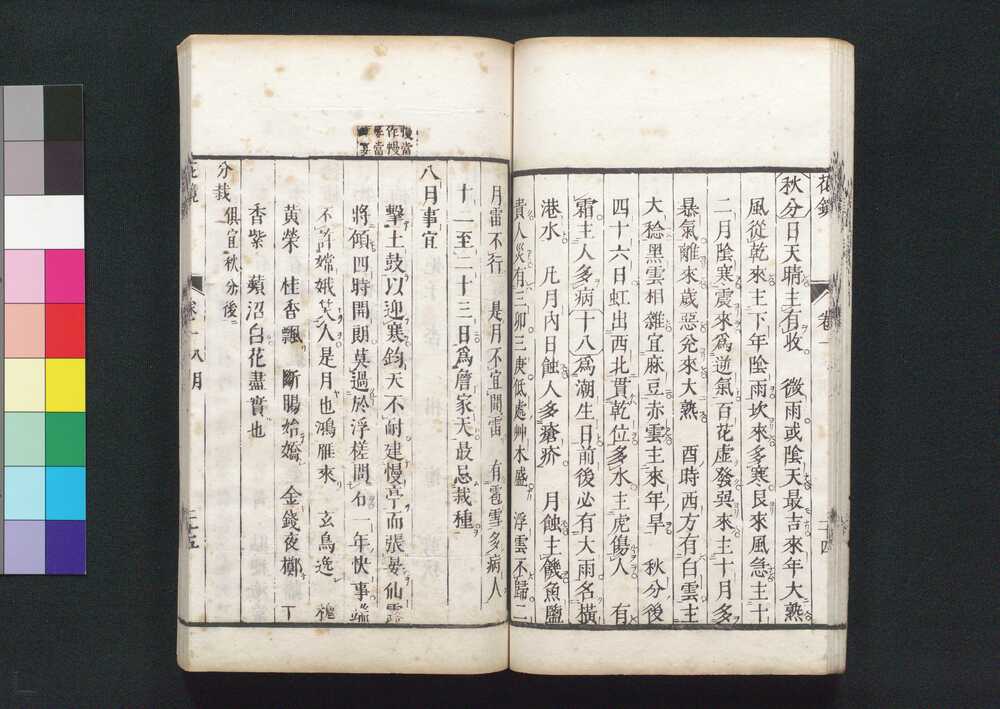 花鏡 卷一 二十四
秋分日天晴主有收 微雨或陰天最吉來年大熟
風從乾來主下年陰雨坎來多寒艮來風急主十
二月陰寒震來為逆氣百花虛發巽來主十月多
暴氣離來歳惡兊來大熟 酉時西方有白雲主
大稔黑雲相雜宜麻豆赤雲主來年旱 秋分後
四十六日虹出西北貫乾位多水主虎傷人 有
霜主人多病十八為潮生日前後必有大雨名橫
港水 凡月内日蝕人多瘡疥 月蝕主饑魚鹽
貴人災有三卯三庚低處艸木盛 浮雲不歸二
月雷不行 是月不宜聞雷 有雹雪多病人
十二至二十三日為詹家天最忌栽種
慢當
作幔
八月事宜
擊土鼓以迎寒鈞天不耐建慢亭而張晏仙露
將傾四時開朗莫過於浮槎問石一年快事
不許嫦娥笑人是月也鴻雁來 玄鳥逸 槐
黄榮 桂香飄 斷腸始嬌 金錢夜擲 丁
香紫 蘋沼白花盡實也
分栽 俱宜秋分後
卷一八月 二十五